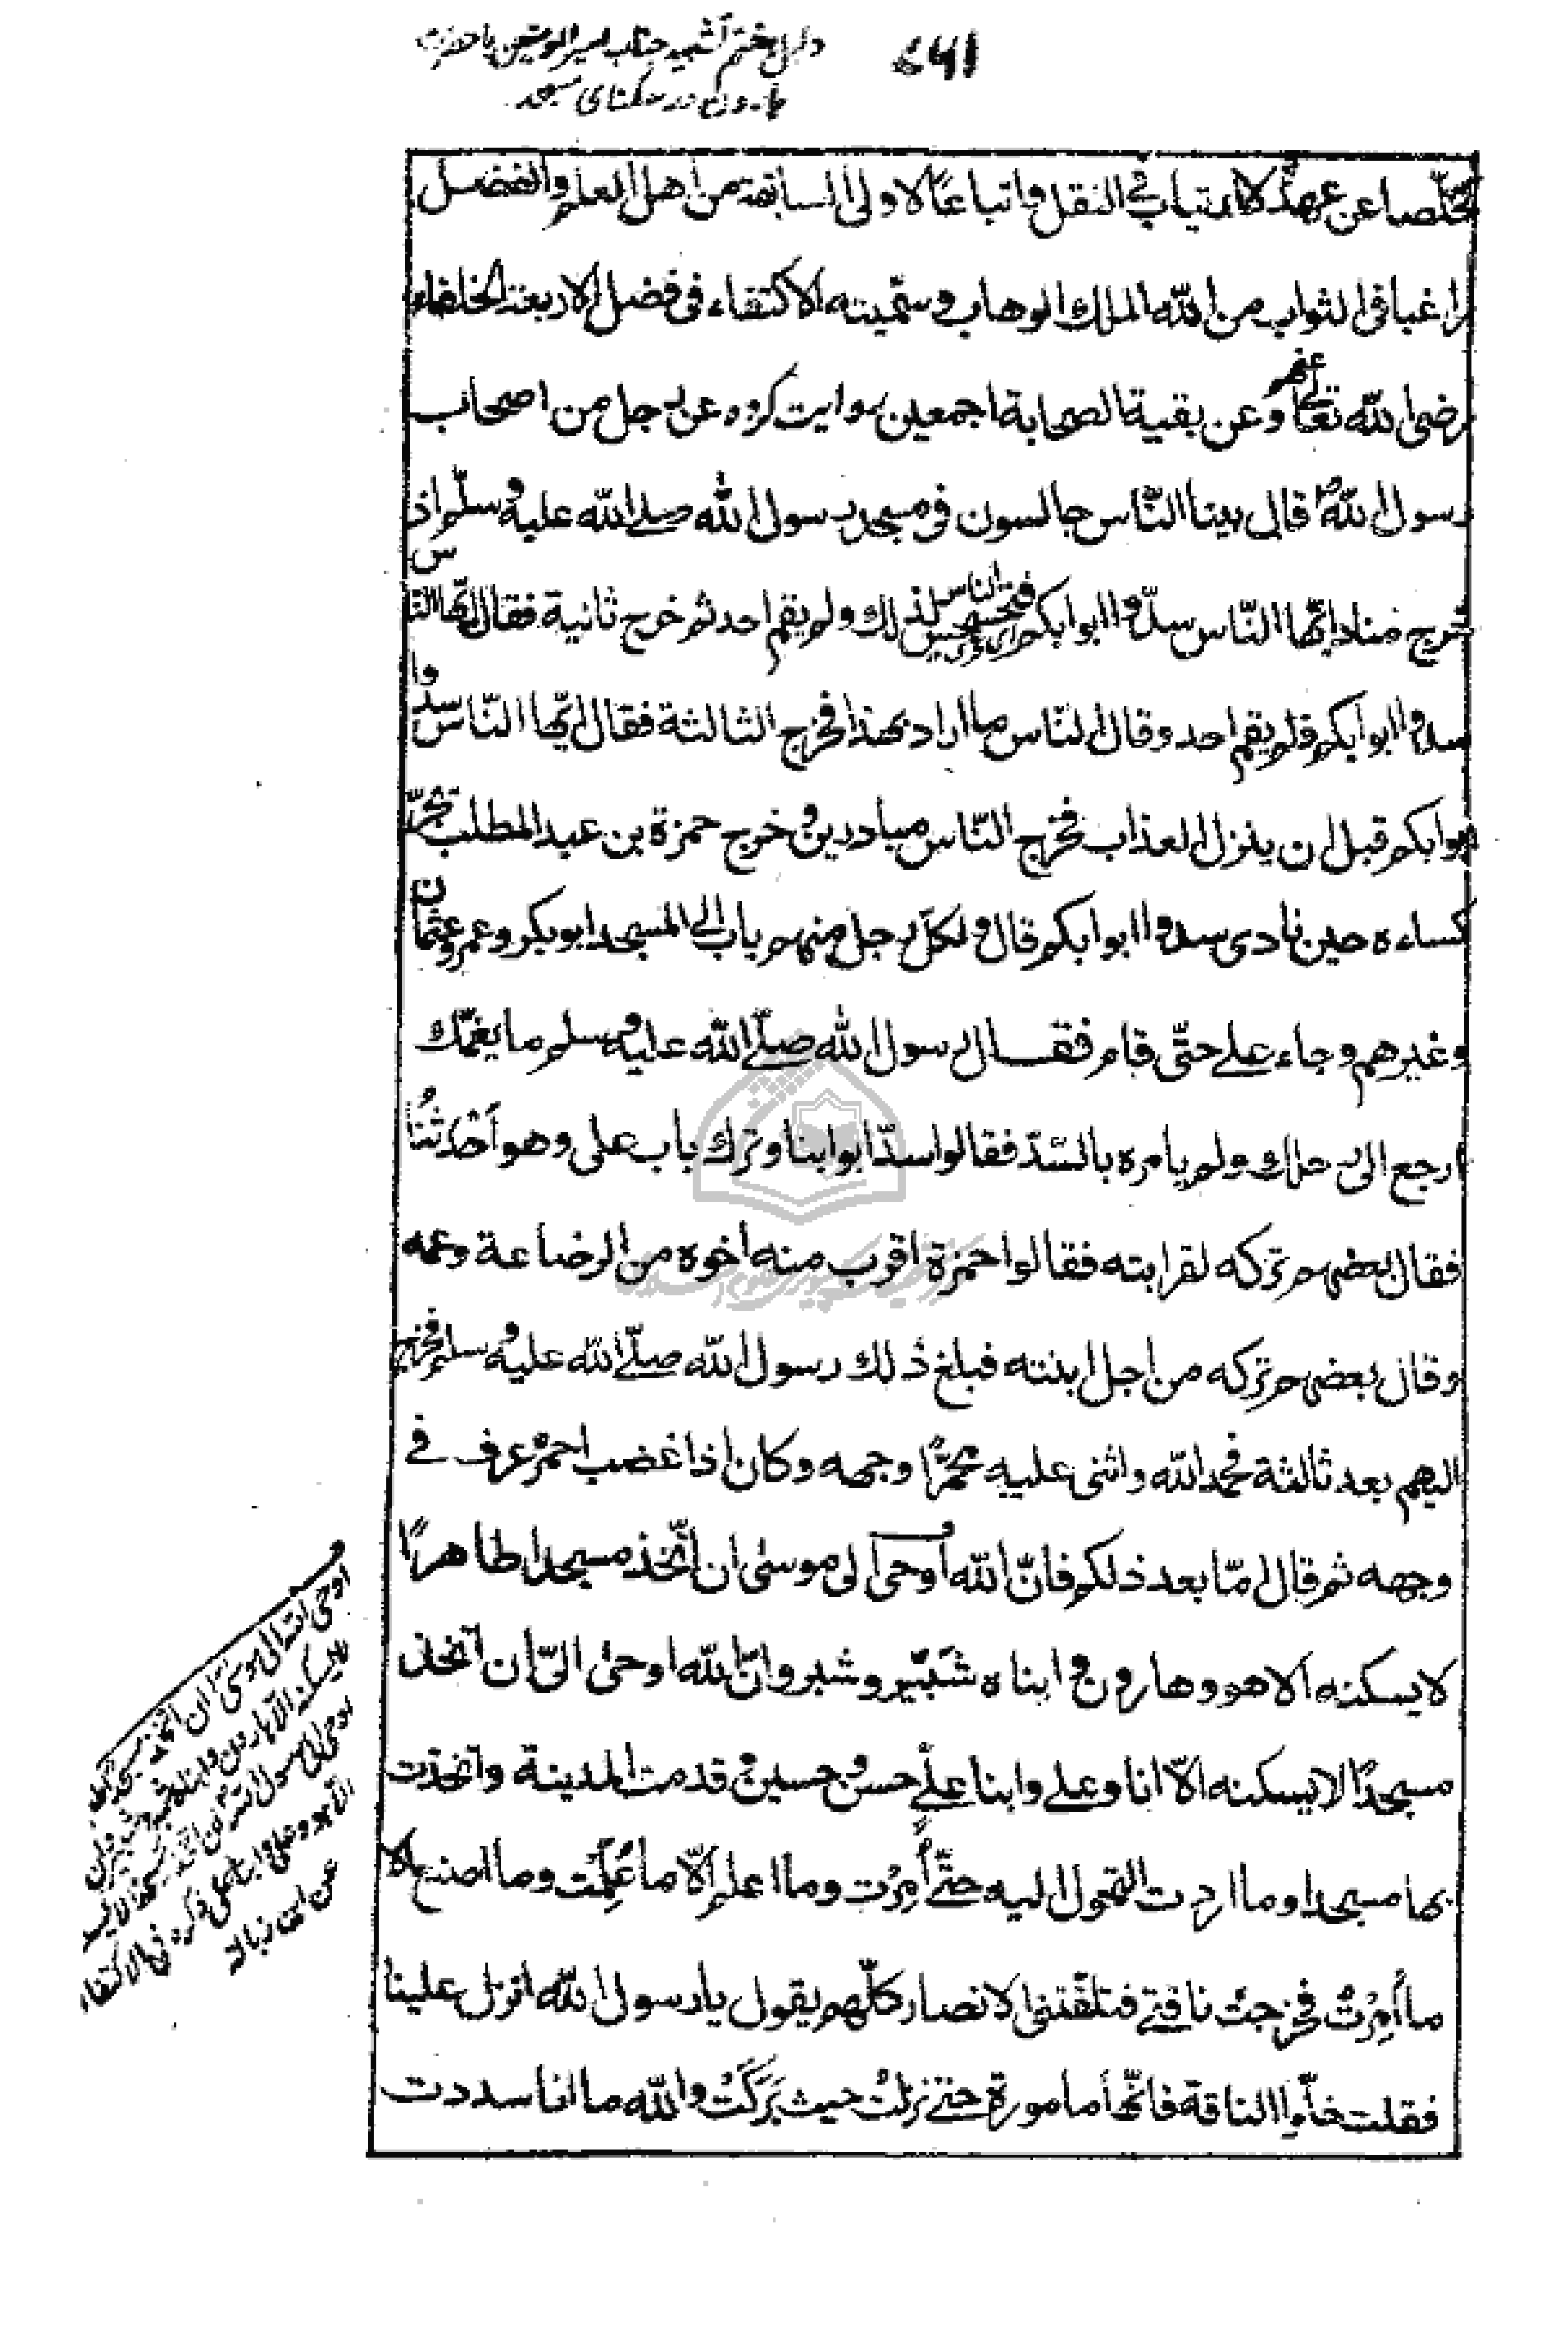 ۶۴۱
دلیل هفتم تشبیه جناب امیرالمؤمنین با حضرت
هارون در سکنای مسجد
مخلّصا عن عهدة الارتياب في النقل واتباعًا لاولى السابقة من اهل العلم والفضل
راغبا فى الثواب من اللّه الملك الوهاب وسمّيته الاكتفاء فى فضل الاربعة الخلفاء
رضى اللّه تعالى عنهم وعن بقية الصحابة اجمعين روايت كرده عن رجل من اصحاب
رسول اللّه ص قال بينا النّاس جالسون فى مسجد رسول اللّه صلى اللّه عليه وسلّم اذ
خرج مناد ايّها النّاس سدّوا ابوابكم فتحسحس الناس لذلك ولم يقم احد ثم خرج ثانية فقال ايّها النّاس
سدوا ابوابكم فلم يقم احد وقال النّاس ما اراد بهذا فخرج الثالثة فقال ايّها النّاس سدوا
ابوابكم قبل ان ينزل العذاب فخرج النّاس مبادرين وخرج حمزة بن عبد المطلب يجرّ
كساءه حين نادى سدوا ابوابكم قال ولكلّ رجل منهم باب الى المسجد ابوبكر وعمر وعثمان
وغيرهم وجاء على حتّى قام فقال رسول اللّه صلّى اللّه عليه وسلم ما يقيمك
ارجع الى رحلك ولم يامره بالسّدّ فقالوا سدّ ابوابنا وترك باب على وهو أحدثُنا
فقال بعضهم تركه لقرابته فقالوا حمزة اقرب منه اخوه من الرضاعة وعمه
وقال بعضهم تركه من اجل ابنته فبلغ ذلك رسول اللّه صلّى اللّه عليه وسلم فخرج
اليهم بعد ثالثة فحمد اللّه واثنى عليه محمّرًا وجهه وكان اذا غضب احمرّ عرق في
وجهه ثم قال امّا بعد ذلكم فانّ اللّه أوحى الى موسى ان اتّخذ مسجدا طاهرًا
لا يسكنه الا هو وهارون وابناه شَبّير وشبر وانّ اللّه اوحى الىّ ان اتخذ
مسجدًا لا يسكنه الّا انا وعلى وابنا علىّ حسن وحسين وقدمت المدينة واتخذت
بها مسجدا وما اردت التحول اليه حتّى أُمِرْت وما اعلم الّا ما عُلِّمْت وما اصنع الا
ما أُمِرْتُ فخرجت على ناقتى فتلقّتنى الانصار كلّهم يقول يا رسول اللّه انزل علينا
فقلت خلّوا الناقة فانّها مامورة حتى نزلتُ حيث بَرَكَتْ واللّه ما انا سددت
اوحى اللّه الى موسى ان اتخذ مسجدا
لا يسكنه الا هارون وابناه شبر وشبير وان
الا هو وعلى وابنا على ذكره فى الاكتفاء
عن ابن زبالة